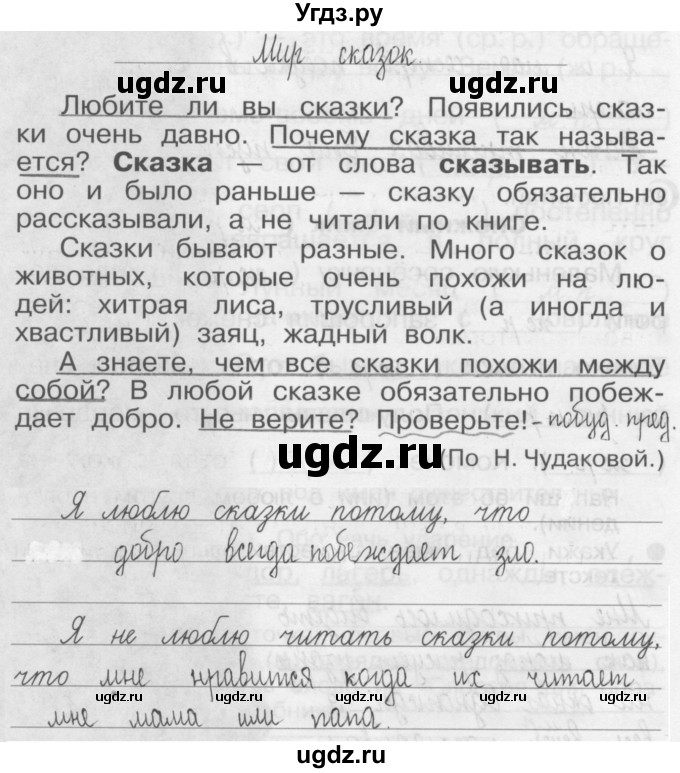 Угдз.ру
Мир сказок.
ugdz.ru ugdz.ru
Любите ли вы сказки? Появились сказ-
ки очень давно. Почему сказка так называ-
ется? Сказка – от слова сказывать. Так
оно и было раньше — сказку обязательно
рассказывали, а не читали по книге.
ugdz.ru
Сказки бывают разные. Много сказок о
животных, которые очень похожи на лю-
дей: хитрая лиса, трусливый (а иногда и
хвастливый) заяц, жадный волк.
ugdz.ru ugdz.ru
А знаете, чем все сказки похожи между
собой? В любой сказке обязательно побеж-
дает добро. Не верите? Проверьте! - побуд. пред.
ugdz.ru
(По Н. Чудаковой.)
Я люблю сказки потому, что
ugdz.ru ugdz.ru
добро всегда побеждает зло.
ugdz.ru
Я не люблю читать сказки потому,
что мне нравится когда их читает
ugdz.ru ugdz.ru
мне мама или папа.
ugdz.ru